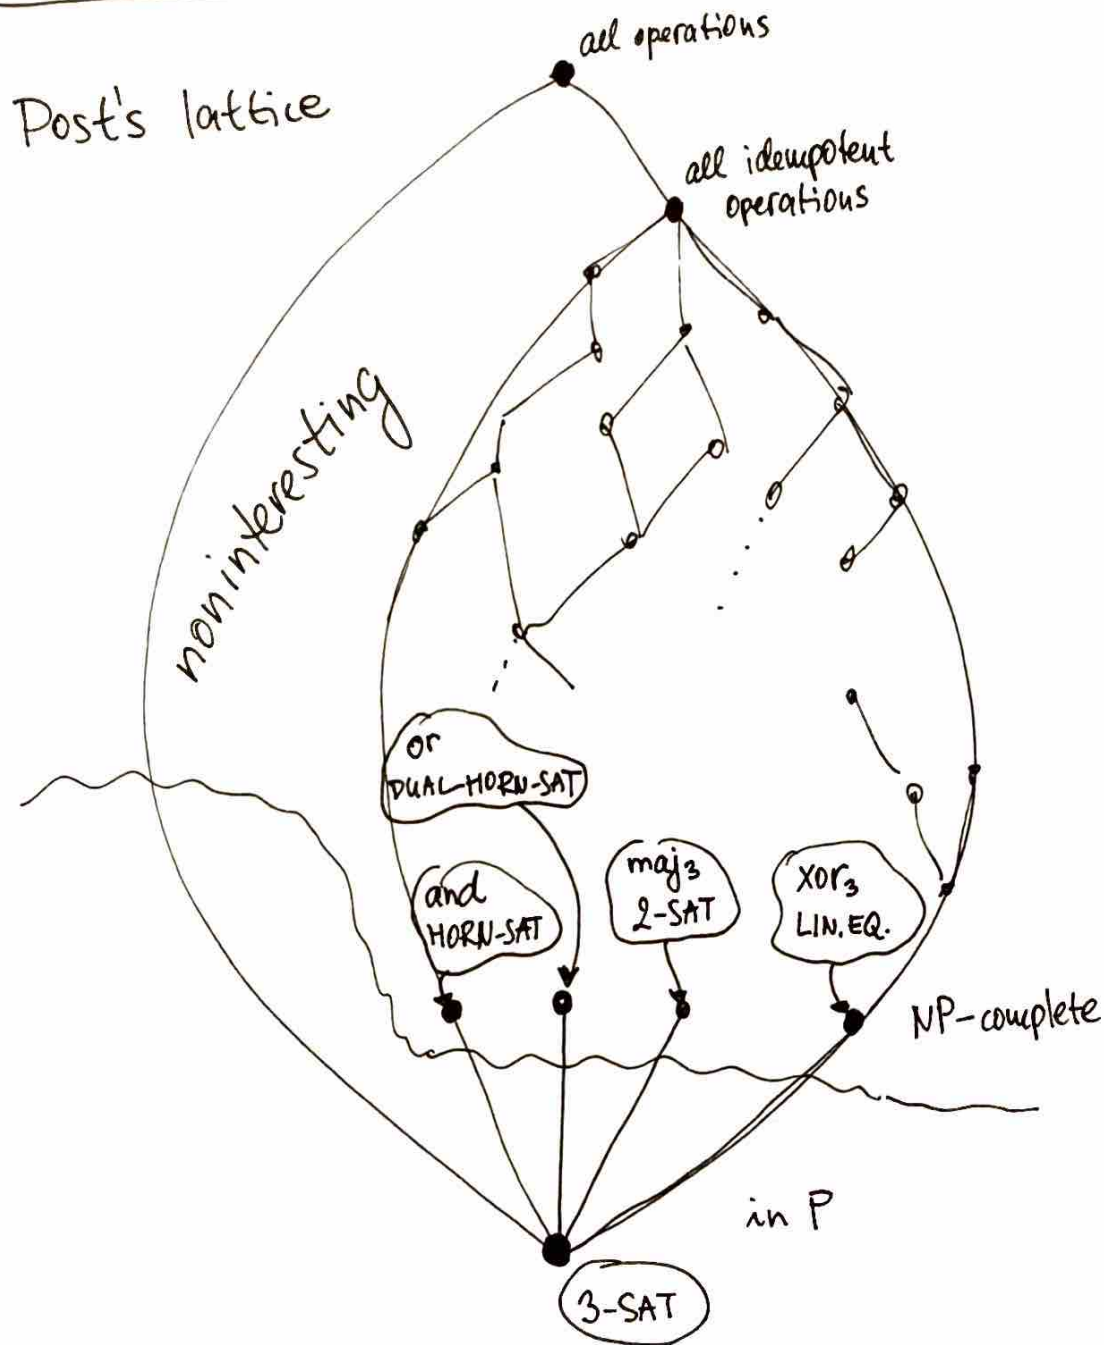 all operations
Post's lattice
all idempotent
operations
noninteresting
or
DUAL-HORN-SAT
and
HORN-SAT
maj₃
2-SAT
xor₃
LIN. EQ.
NP-complete
in P
3-SAT